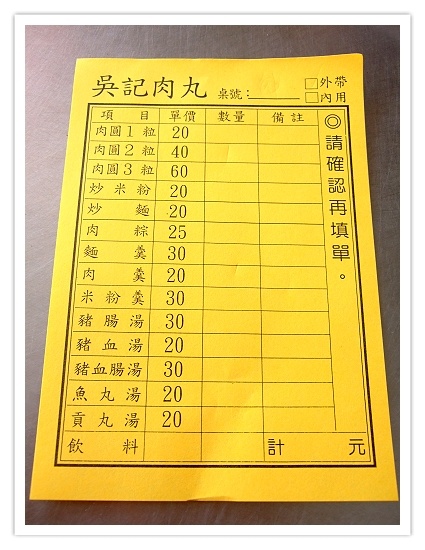 吳記肉丸 桌號：
□外帶
□內用
項目 單價 數量 備註
肉圓1粒 20
肉圓2粒 40
肉圓3粒 60
炒米粉 20
炒麵 20
肉粽 25
麵羹 30
肉羹 20
米粉羹 30
豬腸湯 30
豬血湯 20
豬血腸湯 30
魚丸湯 20
貢丸湯 20
飲料 計 元
◎請確認再填單。